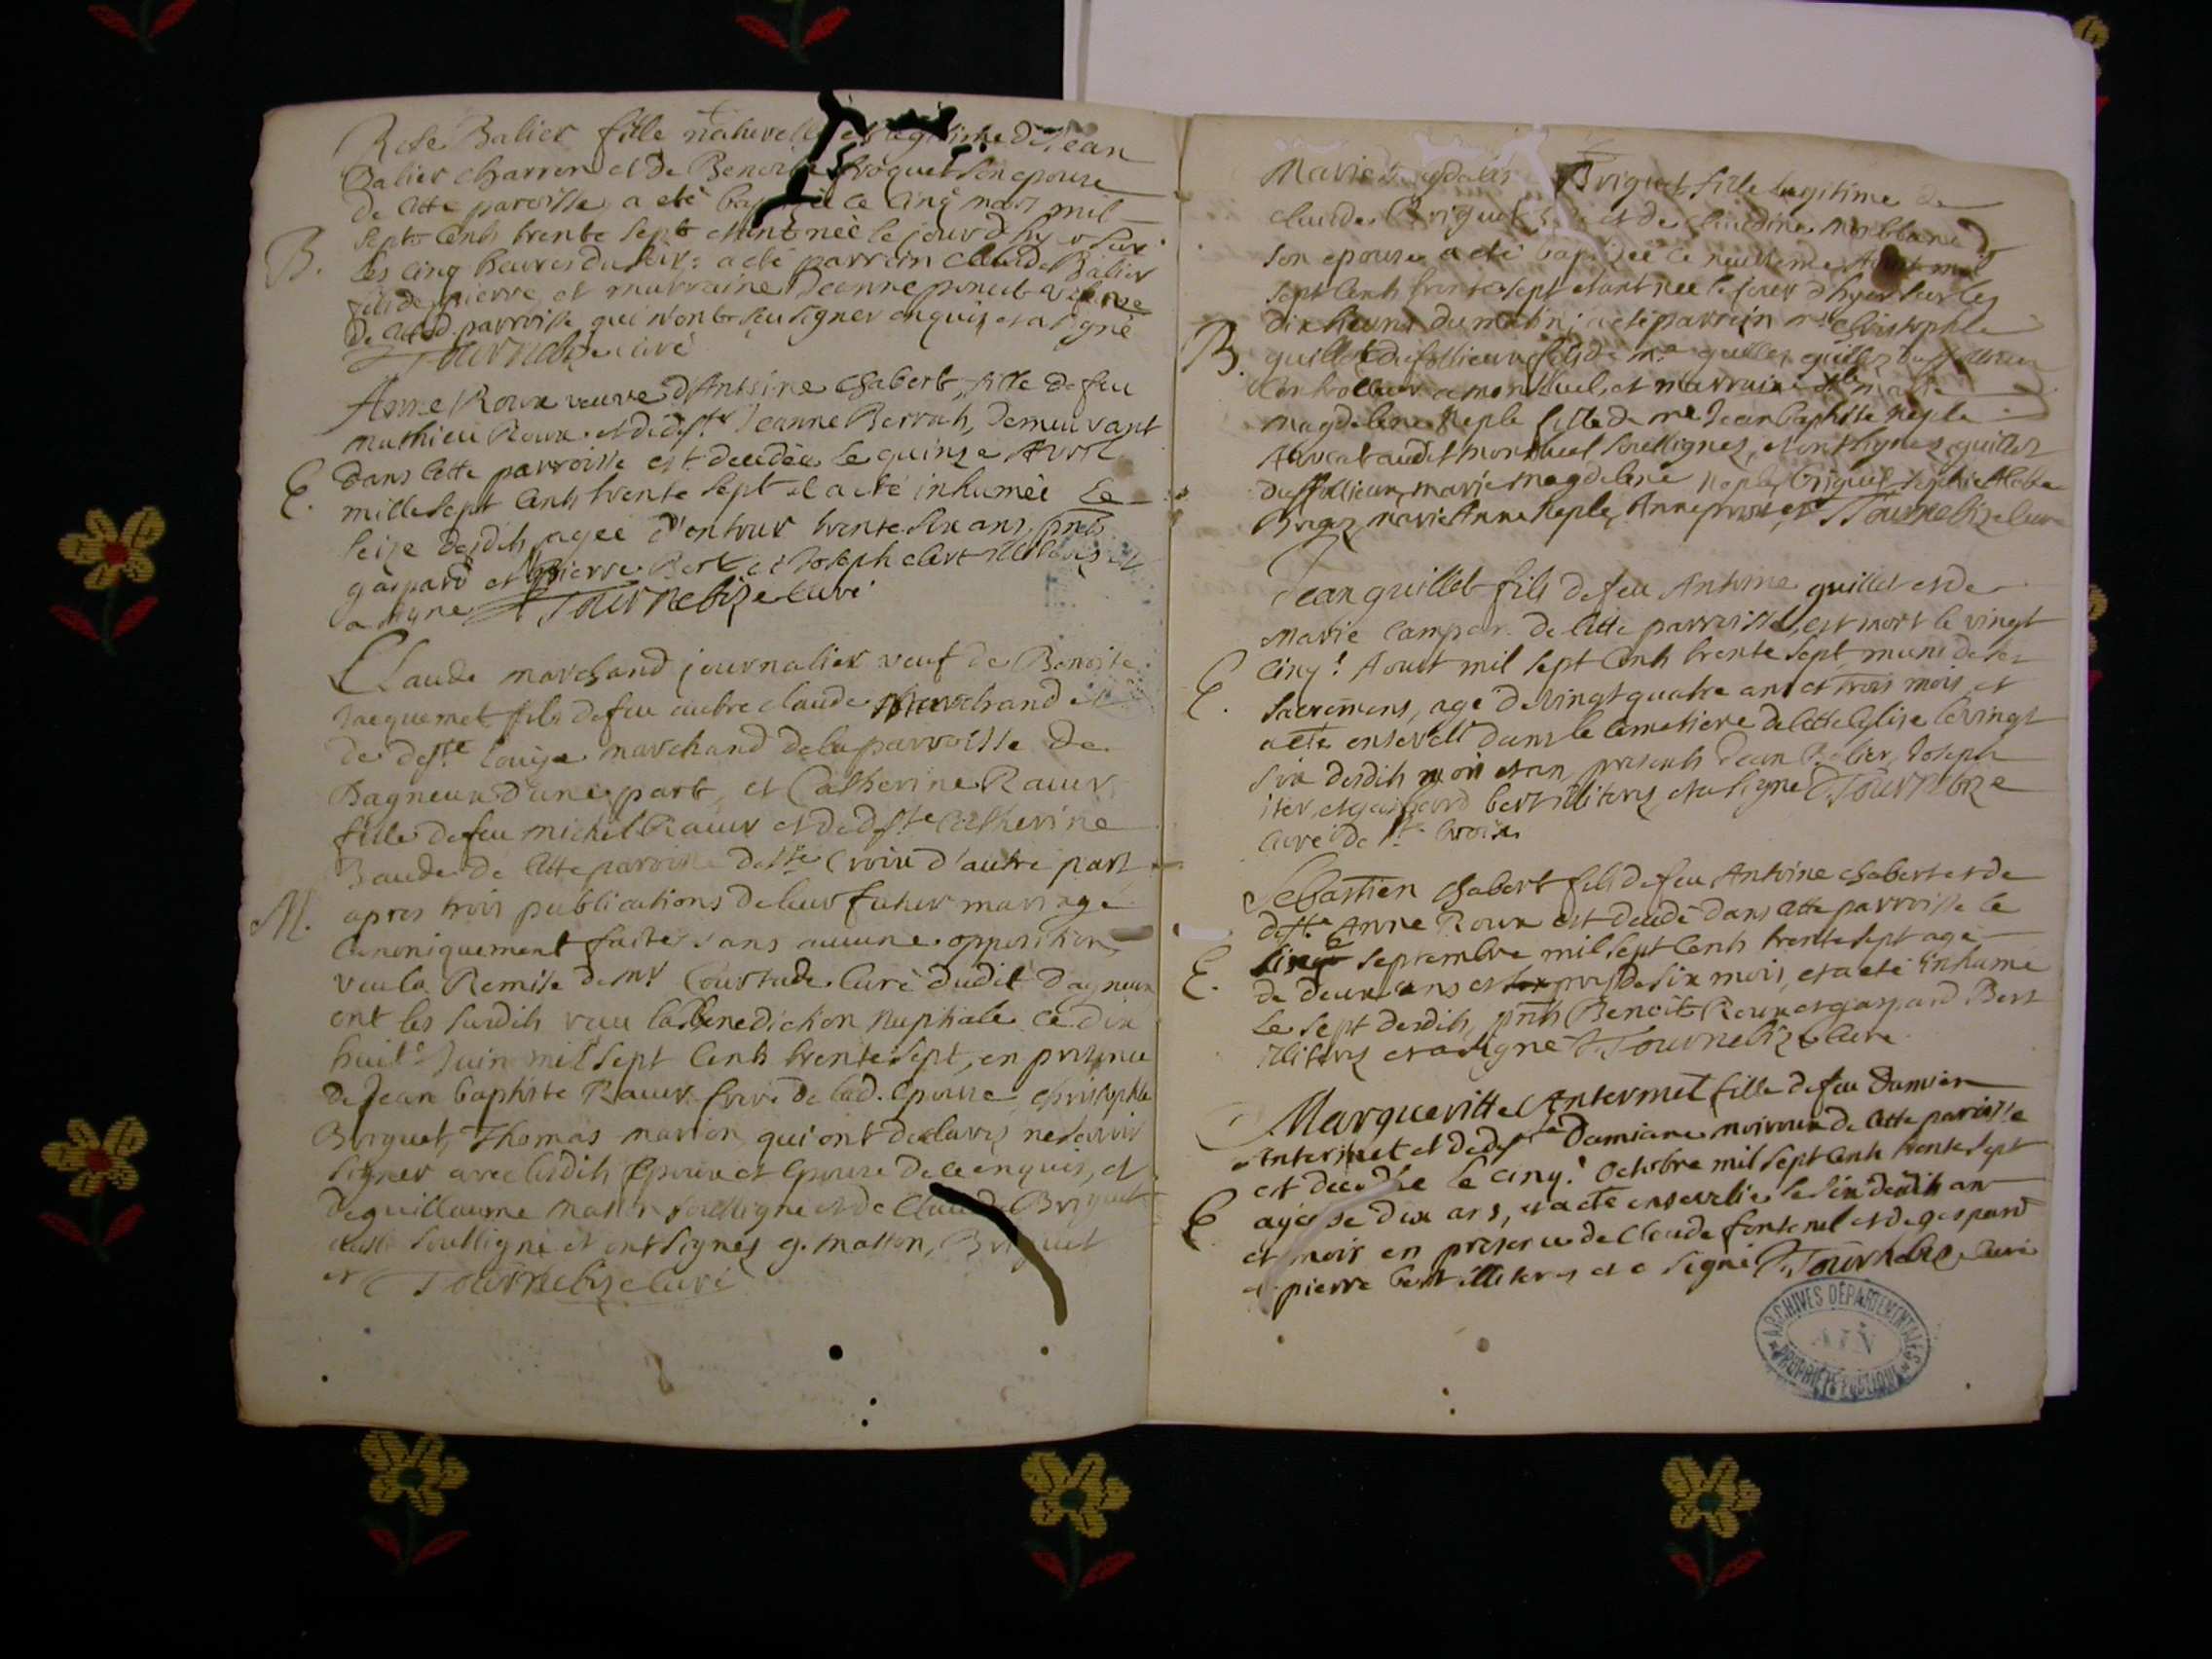 Rose Balier fille naturelle et legitime de Jean
Balier charron et de Benoite froquet son epouse
de cette paroisse a eté baptisée le cinq mars mil
sept cents trente sept etant née le jour d'hyer sur
B. les cinq heures du soir: a eté parrain Claude Balier
fils de pierre, et marraine Jeanne
de cette d. parroisse qui n'ont sçu signer enquis et a signé
Tournebize curé
Anne Roux veuve d'Antoine Chabert, fille de feu
mathieu Roux et de deff.te Jeanne Berrah, demeurant
E. dans cette parroisse est decedée le quinze Avril
mille sept cents trente sept et a eté inhumée le
seize desdits, agée d'entour trente six ans, pnts
gaspard et pierre Bert et Joseph illiteres et
a signé Tournebize curé
Claude marchand journalier veuf de Benoite
Jacquemet fils de feu autre claude Marchand et
de deff.te Louise marchand de la parroisse de
Dagneux d'une part, et Catherine Raur
fille de feu michel Raur et de deff.te Catherine
Baude de cette paroisse de Ste Croix d'autre part
M. apres trois publications de leur futur mariage
canoniquement faites sans aucune opposition
veu la Remise de mr Courtade curé dudit Dagneux
ont les susdits reçu la Benediction Nuptiale ce dix
huit.e Juin mil sept cents trente sept, en presence
de Jean baptiste Raur frere de lad. epouse, christophle
Briquet, Thomas marion qui ont declarés ne savoir
signer avec lesdits epoux et epouse de ce enquis, et
de guillaume matton soussigné et de Claude Briquet
aussi soussigné et ont signés g. matton, Briquet
et Tournebize curé
Marie magdelene Briquet fille legitime de
claude Briquet et de claudine montbland
son epouse a eté baptisée le neuvieme Aoust mil
sept cents trente sept etant née le jour d'hyer sur les
dix heures du matin; a eté parrain mr christophle
B. guillot dufollieux fils de mre guillot dufollieux
controlleur a montluel, et marraine dlle marie
magdelene Neple fille de me Jean baptiste Neple
Avocat audit montluel soussignés, et ont signés guillot
duffollieux, marie magdelene Neple, briquet,
marie Anne Neple, Tournebize curé
Jean guillet fils de feu Antoine guillet et de
marie campar de cette parroisse, est mort le vingt
E. cinq.e Aoust mil sept cents trente sept muni de ses
sacremens, agé de vingt quatre ans et trois mois et
a eté enseveli dans le cemetiere de cette eglise le vingt
six desdits mois et an, presents Jean Balier, Joseph
iter, et gaspard bert illiteres, et a signé Tournebize
curé de Ste croix
Sebastien Chabert fils de feu Antoine chabert et de
deff.te Anne Roux est decedé dans cette parroisse le
E. septembre mil sept cents trente sept agé
de deux ans et pres de six mois, et a eté inhumé
le sept desdits, pnts Benoit Roux et gaspard Bert
illiteres et a signé Tournebize curé
Margueritte Antermet fille de feu Damien
Antermet et de deff.te Damiane noiroux de cette paroisse
est decedée le cinq.e Octobre mil sept cents trente sept
E agée de dix ans, et a eté ensevelie le six desdits an
et mois en presence de Claude fontenel et de gaspard
et pierre bert illiteres et a signé Tournebize curé
ARCHIVES DÉPARTEMENTALES
AIN
PROPRIÉTÉ PUBLIQUE